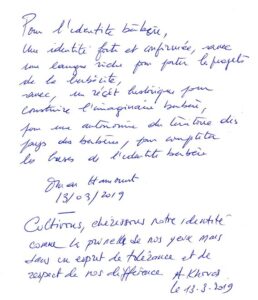 Pour l'identité berbère,
Une identité forte et confirmée, avec
une langue riche pour porter le projet
de la berbérité,
avec, un récit historique pour
construire l'imaginaire berbère,
pour une autonomie du territoire des
pays des berbères, pour compléter
les bases de l'identité berbère
13/03/2019
Cultivons, chérissons notre identité
comme la prunelle de nos yeux mais
dans un esprit de tolérance et de
respect de nos différence A. Khoras
le 13.3.2019